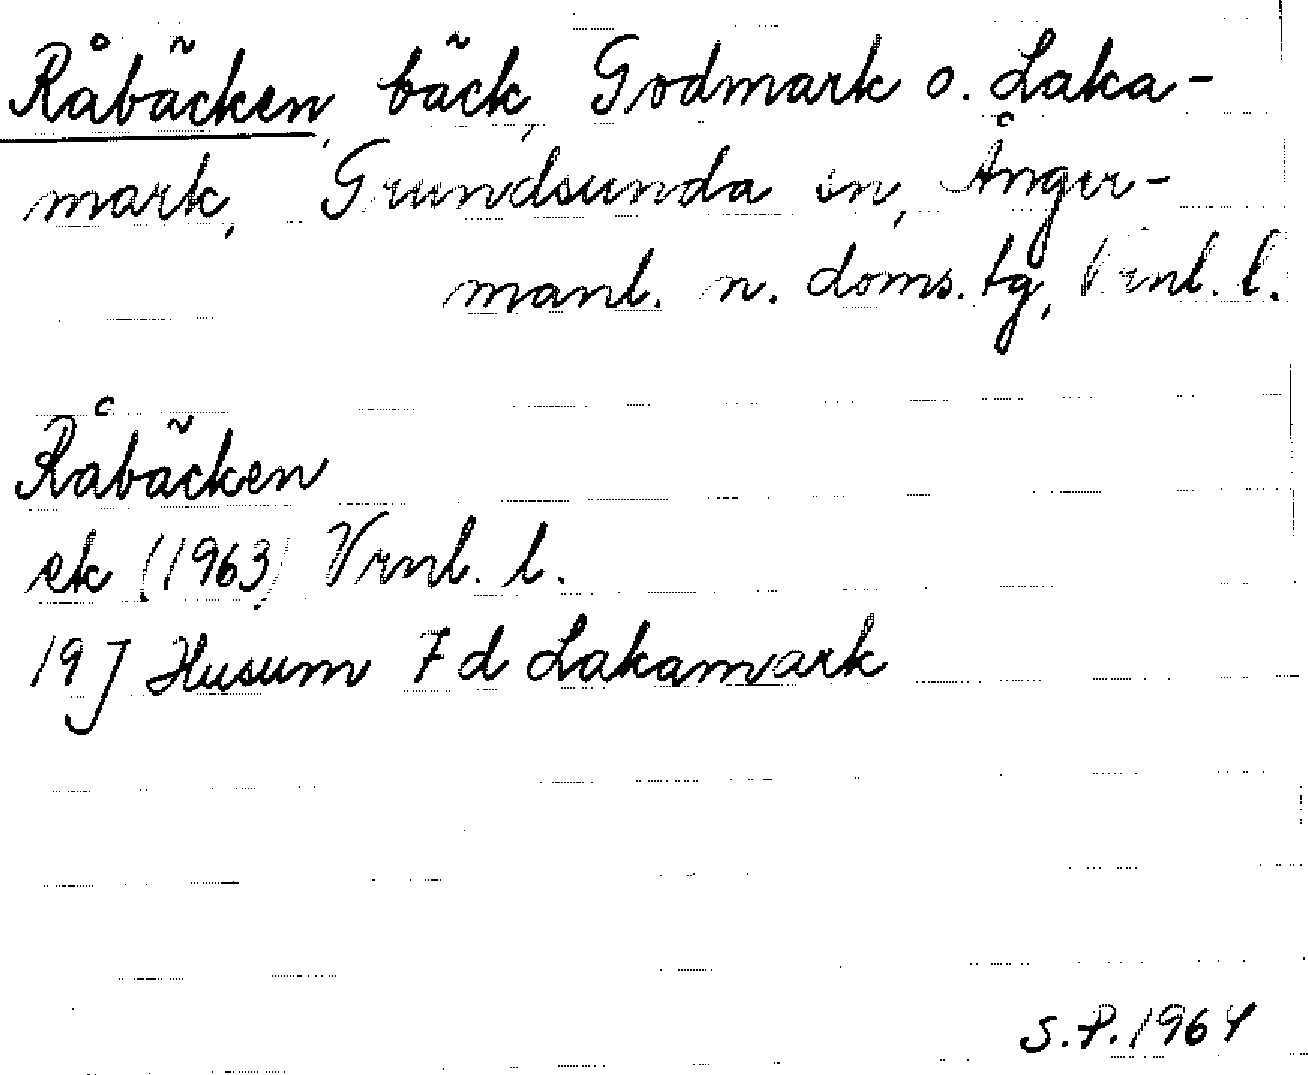 Råbäcken, bäck, Godmark o. Laka-
mark, Grundsunda sn, Ånger-
manl. n. doms. tg, Vrnl. l.
Råbäcken
ek (1963) Vrnl. l.
19 J Husum 7 d Lakamark
S.P. 1964